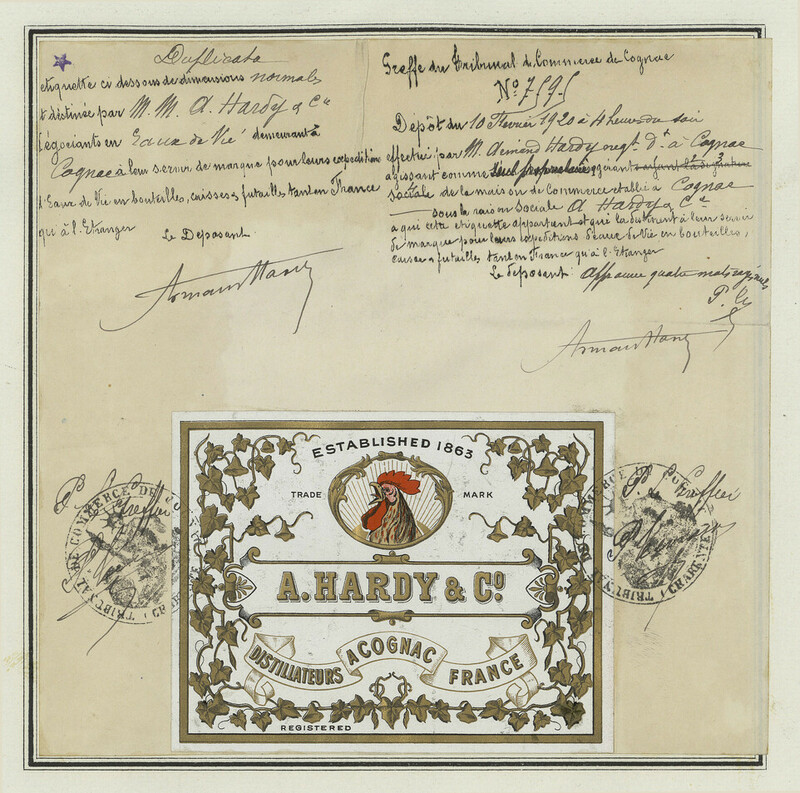 Duplicata
etiquette ci dessous de dimensions normales
et destinée par M. M. A. Hardy & Cie
Négociants en Eaux de Vie demeurant à
Cognac à leur servir de marque pour leurs expeditions
d'Eaux de Vie en bouteilles, caisses & futailles tant en France
qu'à l'Etranger
Le Deposant.
Armand Hardy
Greffe du Tribunal de Commerce de Cognac
No 7595
Depôt du 10 Février 1920 à 4 heures du soir
effectué par M. Armand Hardy negt. dt. à Cognac
agissant comme seul propriétaire, gérant
sociale de la maison de Commerce établie à Cognac
sous la raison Sociale A Hardy & Cie
à qui cette etiquette appartient et qui la destinent à leur servir
de marque pour leurs expeditions d'eaux de Vie en bouteilles,
caisses & futailles tant en France qu'à l'Etranger
Le deposant approuvé quatre mots rayés nuls
Armand Hardy
ESTABLISHED 1863
TRADE MARK
A. HARDY & Co.
DISTILLATEURS A COGNAC FRANCE
REGISTERED
P. le Greffier
TRIBUNAL DE COMMERCE DE
P. le Greffier
TRIBUNAL DE COMMERCE DE
CHARENTE